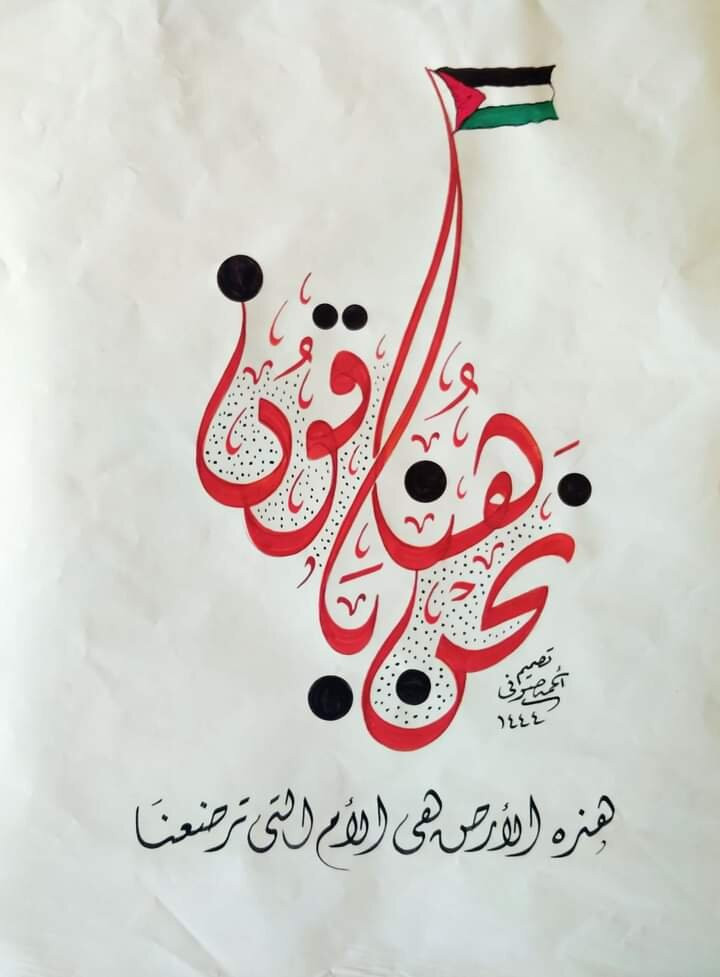 نحن هنا باقون
تصميم
أحمد صوفي
١٤٤٤
هذه الأرض هي الأم التي ترضعنا